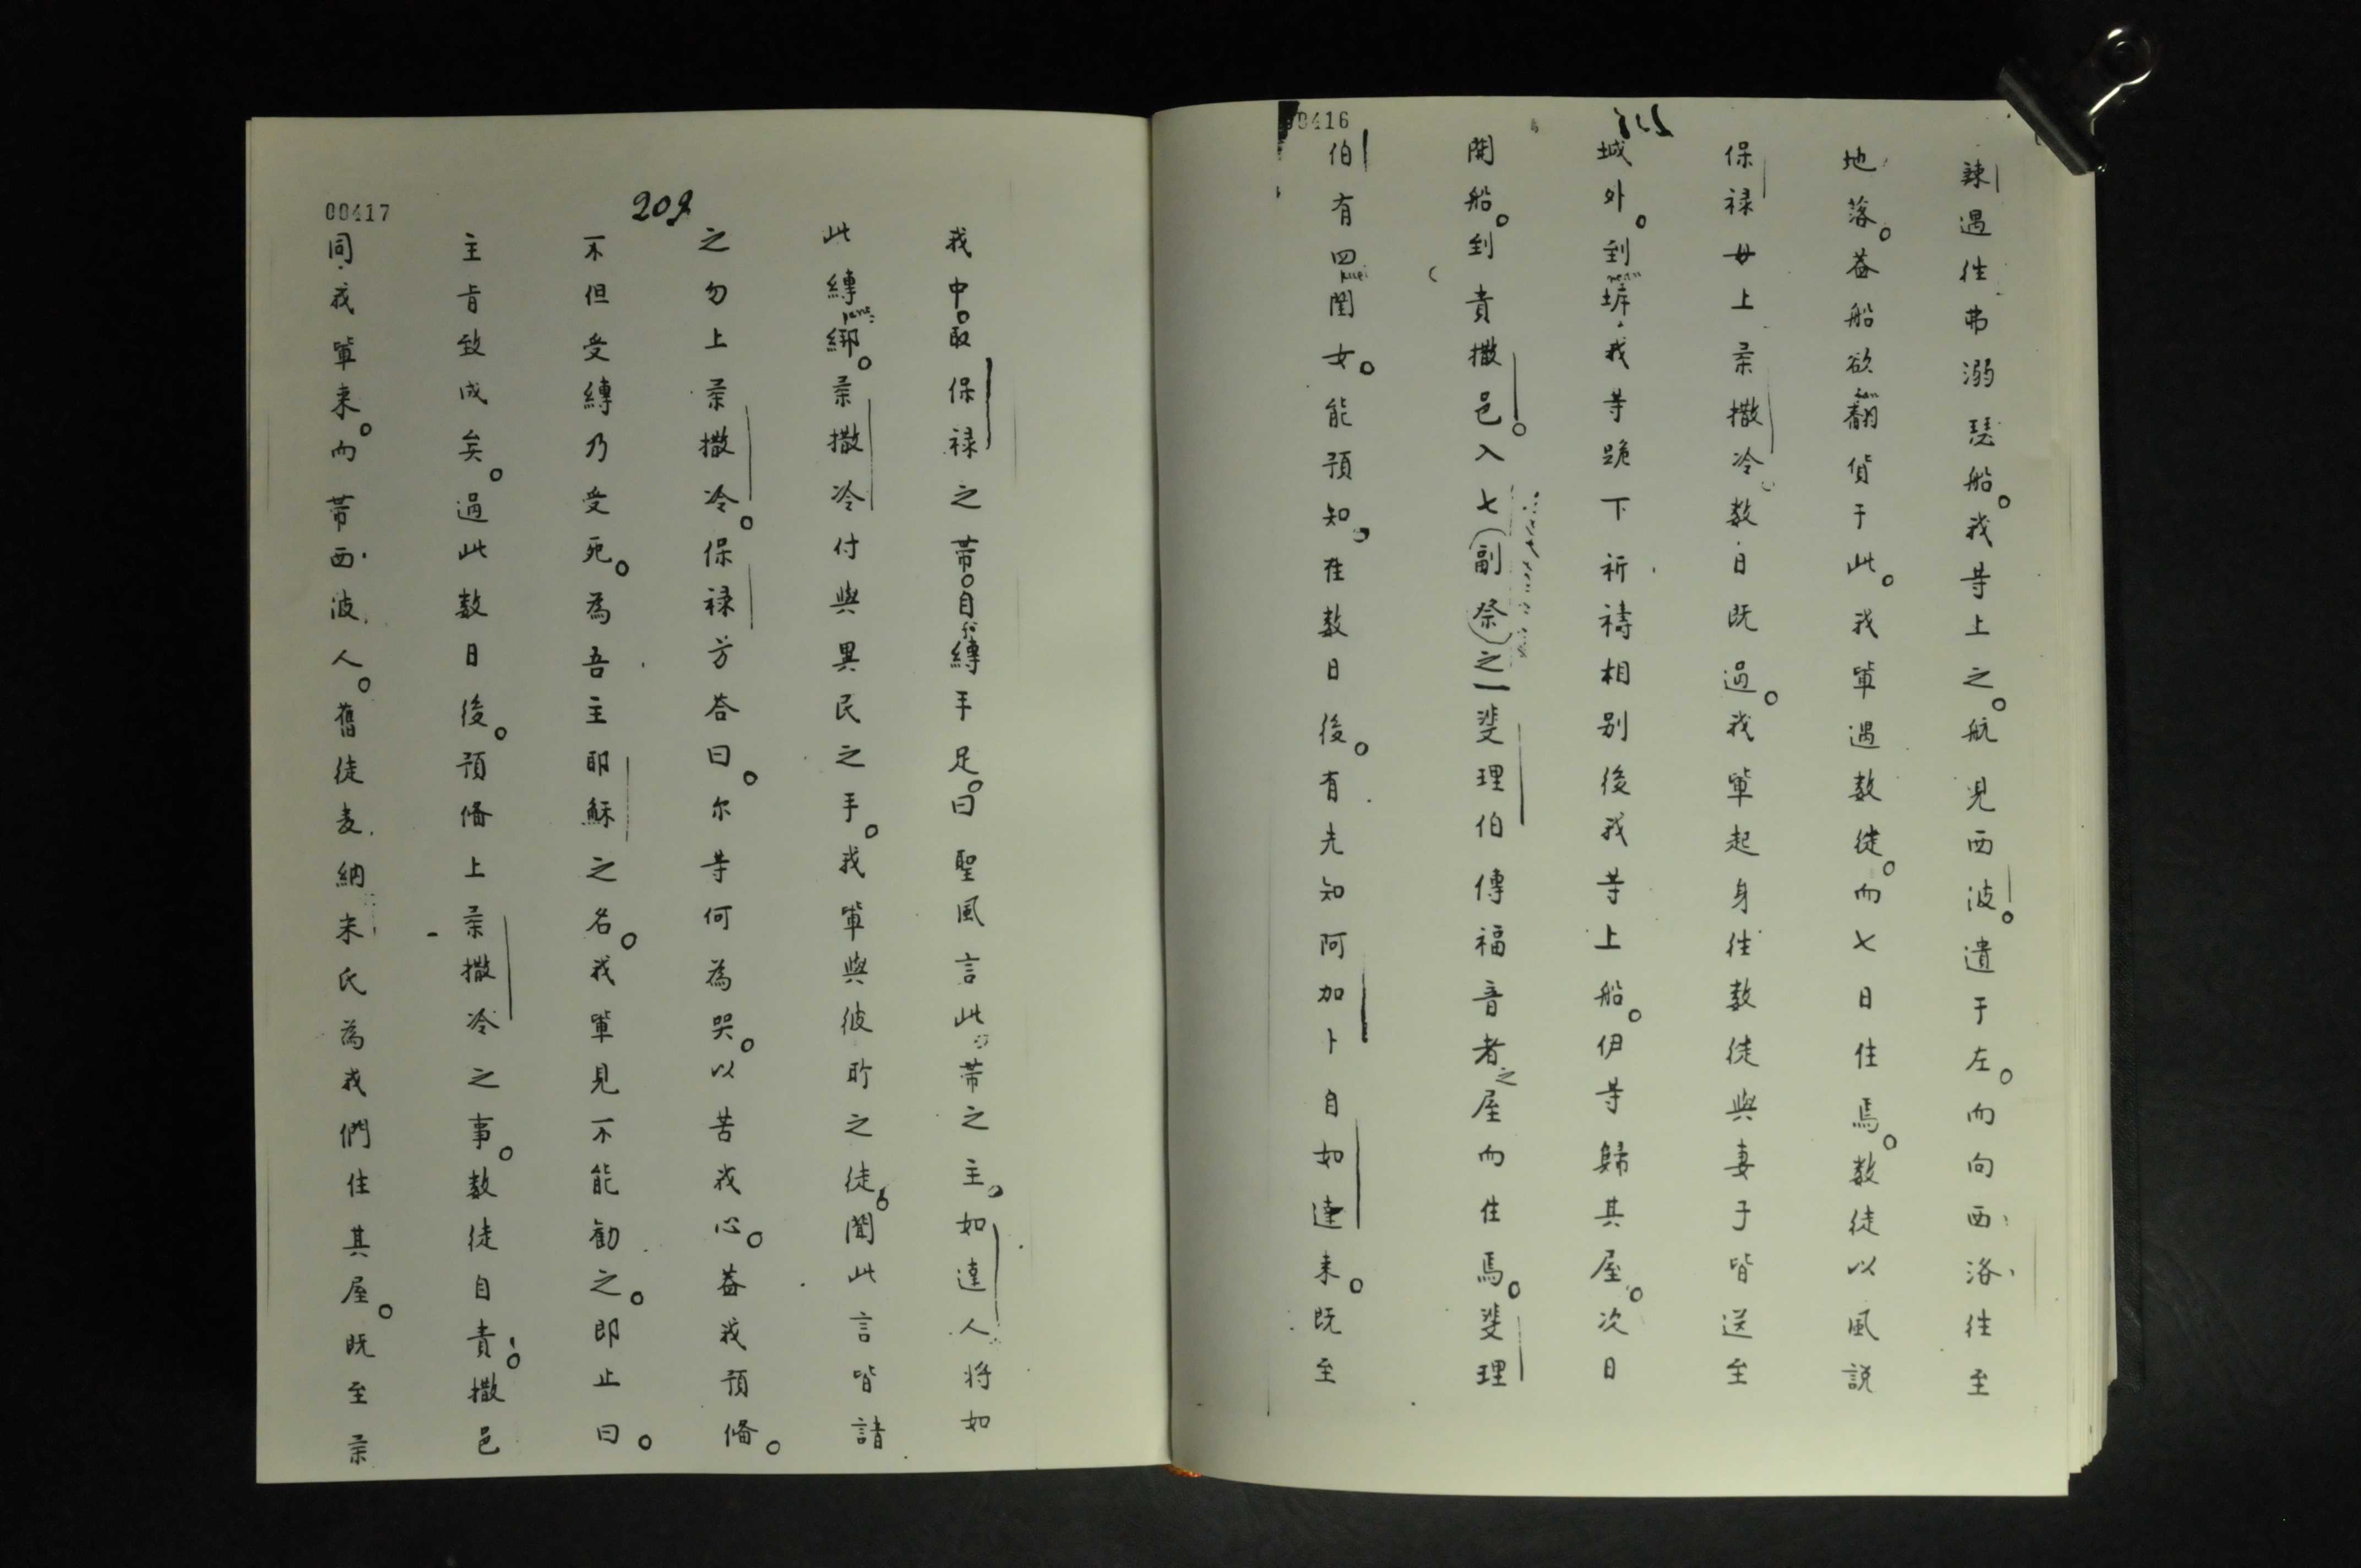 00416
辣遇往弗溺瑟船。我等上之。航見西波。遺于左。而向西洛往至
地落。蓋船欲翻貨于此。我軰遇数徒。而七日住焉。数徒以風説
保禄毋上柔撒冷数日既過。我軰起身往数徒與妻子皆送至
城外。到㙸我等跪下祈禱相别後我等上船。伊等歸其屋。次日
開船。到責撒邑。入七副祭之一斐理伯傳福音者之屋而住焉。斐理
伯有四閨女。能預知。在数日後。有先知阿加卜自如達来。既至
209
00417
我中。取保禄之带。自縛手足。曰聖風言此。带之主。如達人将如
此縛綁。柔撒冷付與異民之手。我軰與彼所之徒。聞此言皆請
之勿上柔撒冷。保禄方荅曰。尔等何為哭。以苦我心。蓋我預俻。
不但受縛乃受死。為吾主耶穌之名。我軰見不能勸之。即止曰。
主肯致成矣。過此数日後。預俻上柔撒冷之事。数徒自責。撒邑
同我軰来。而带西波人。舊徒麦納宋氏為我們住其屋。既至柔